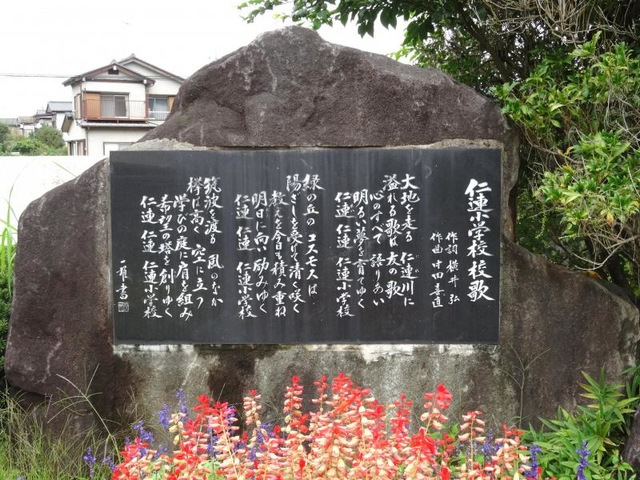 仁連小学校校歌
作詞 横井 弘
作曲 甘田喜直
大地を走る 仁連川に
溢れる歌は 友の歌
心のすべて 語りあい
明るい夢を 育てゆく
仁連 仁連 仁連小学校
緑の丘の コスモスは
陽ざしを受けて 清く咲く
教えを今日も 積み重ね
明日に向い 励みゆく
仁連 仁連 仁連小学校
筑波を渡る 風のなか
欅は高く 空に立つ
学びの庭に 肩を組み
希望の塔を 創りゆく
仁連 仁連 仁連小学校
書